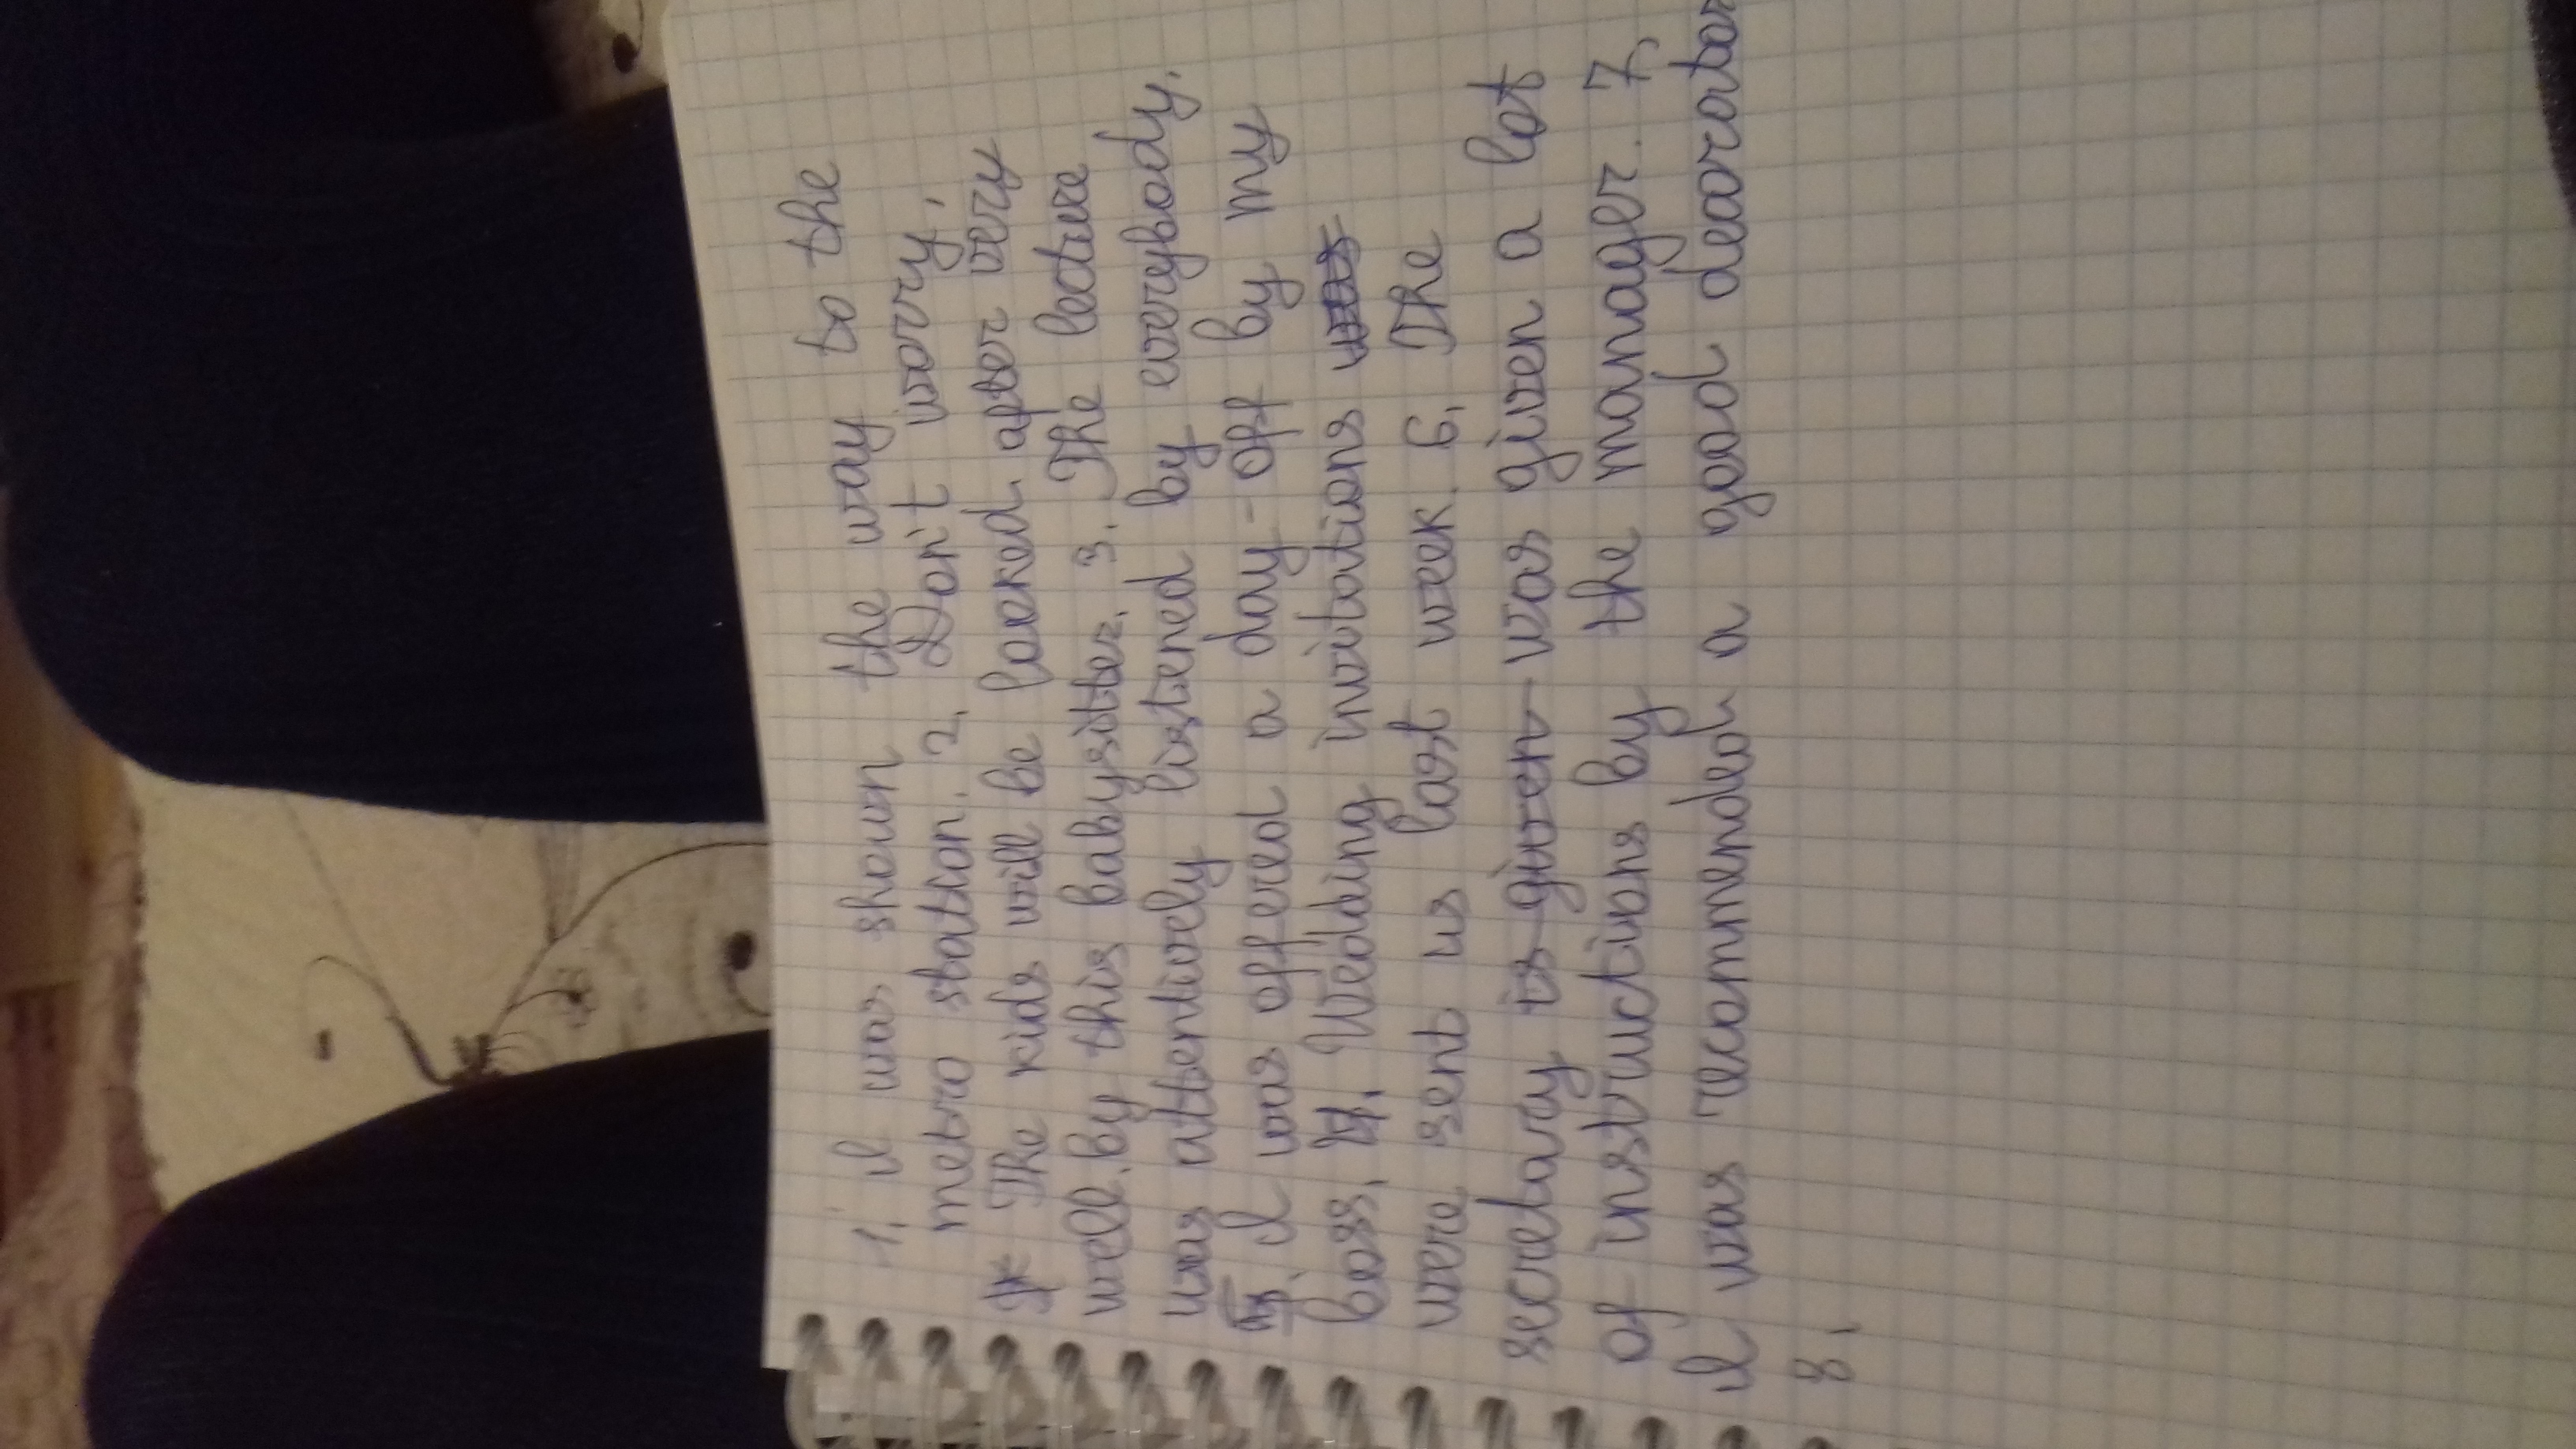 1. I was shown the way to the
metro station. 2. Don't worry,
The kids will be looked after very
well by this babysitter. 3. The lecture
was attentively listened by everybody.
I was offered a day-off by my
boss. Wedding invitations was
were sent us last week. 6. The
secretary is given was given a lot
of instructions by the manager. 7.
I was recommended a good decorator
8.